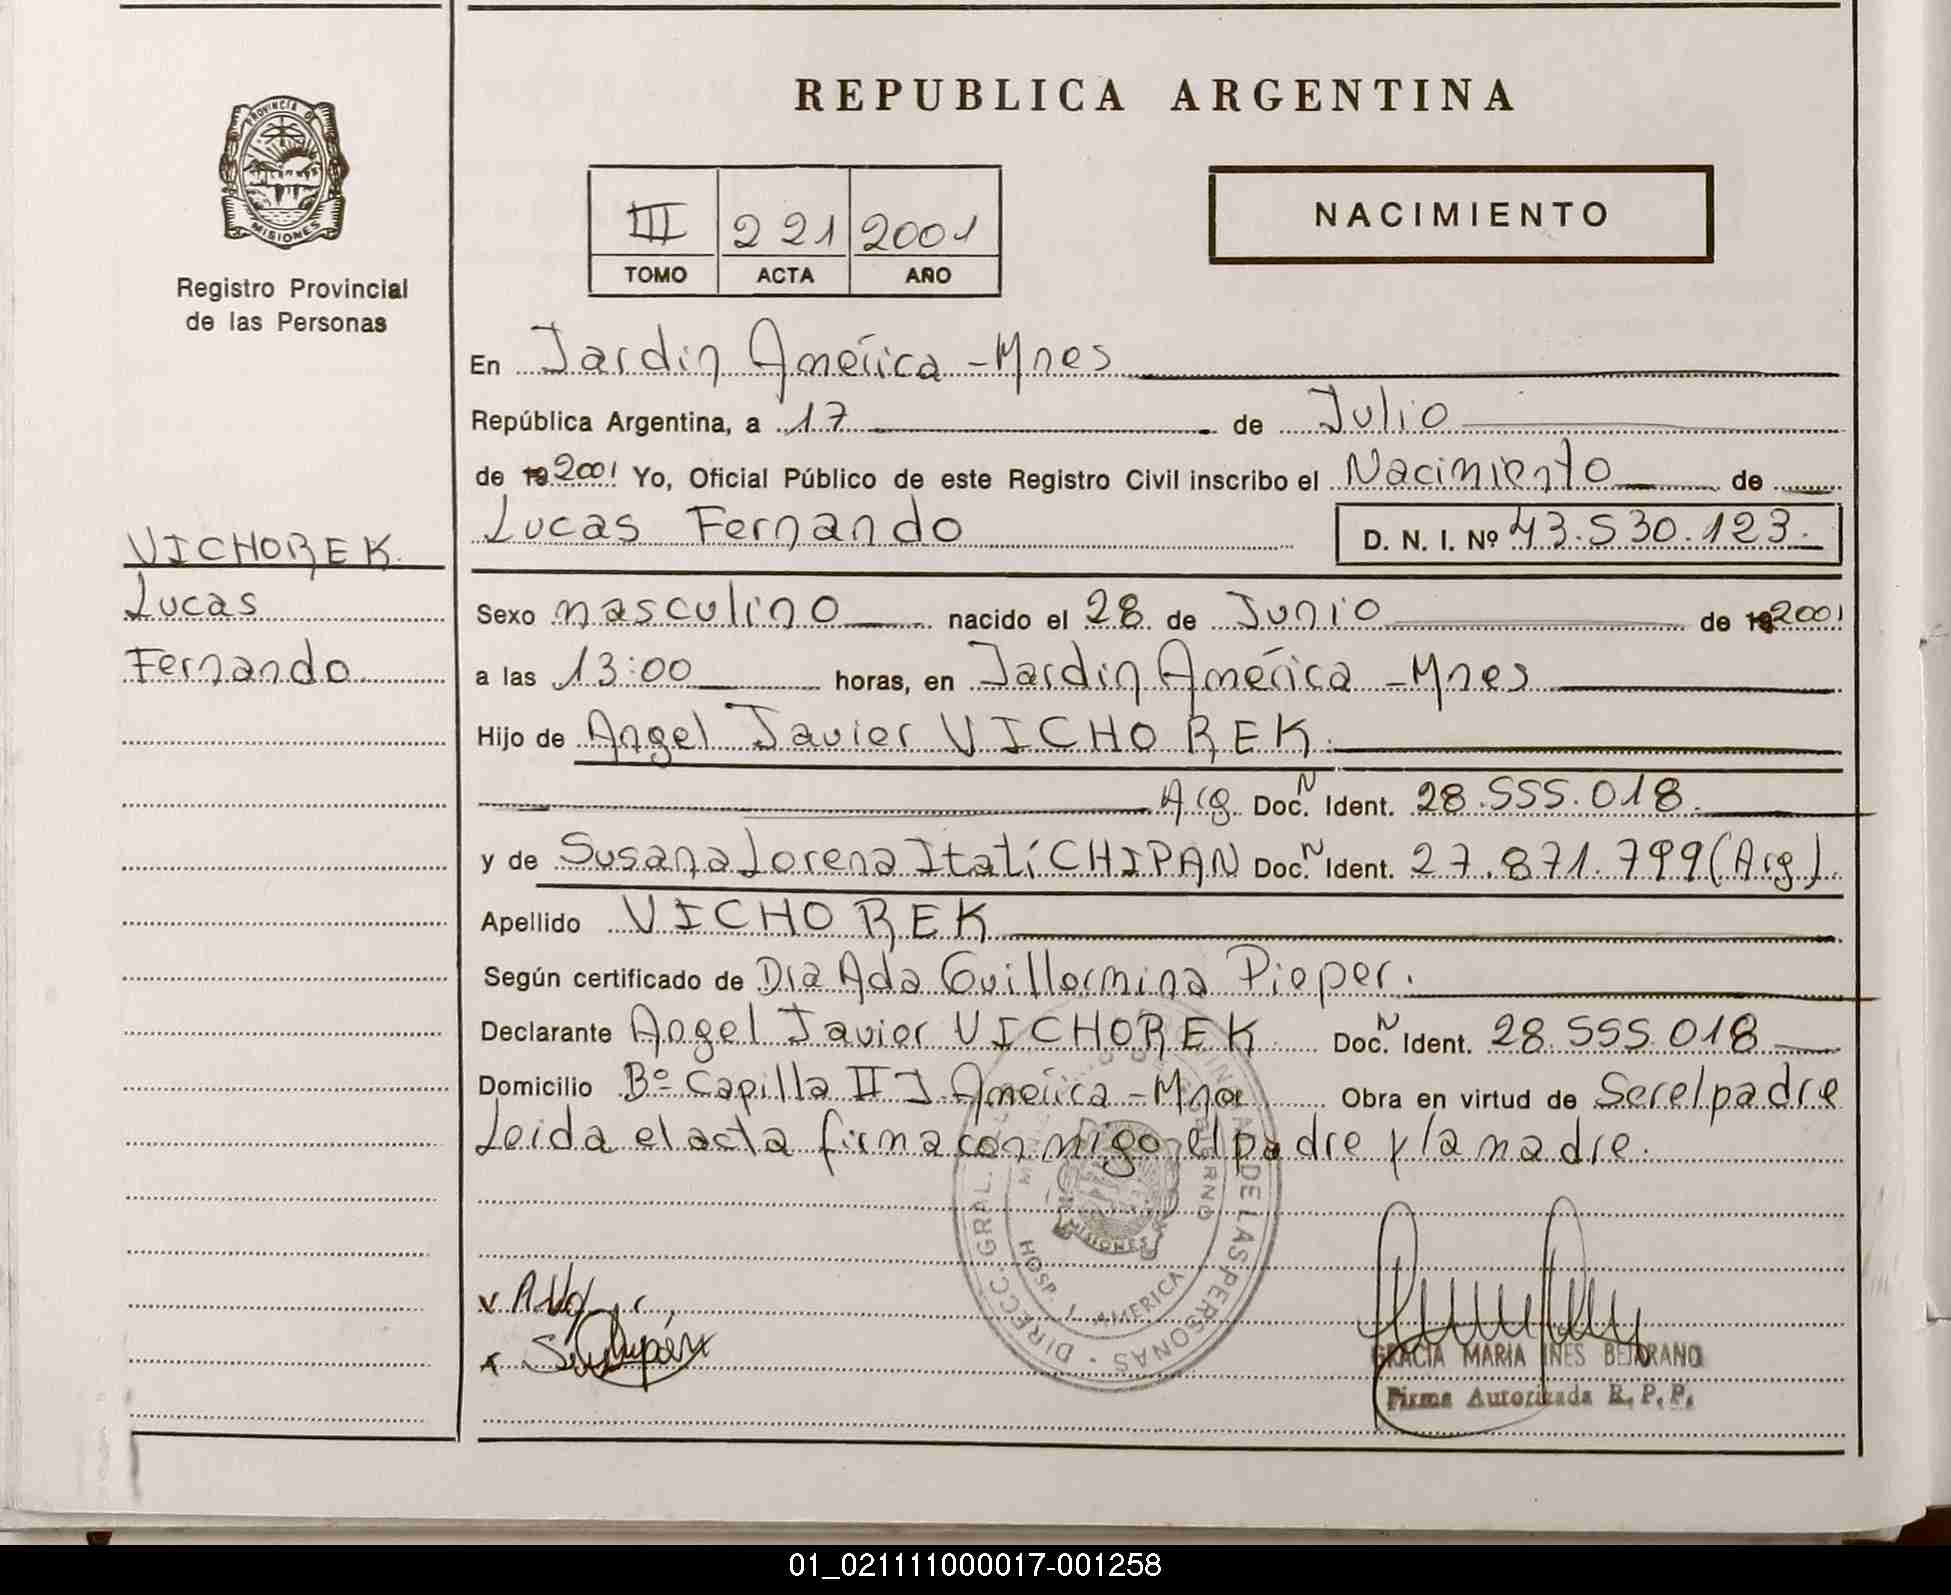 REPUBLICA ARGENTINA
PROVINCIA DE
MISIONES
Registro Provincial
de las Personas
III 221 2001
TOMO ACTA AÑO
NACIMIENTO
En Jardin América - Mnes
República Argentina, a 17 de Julio
de 19 2001 Yo, Oficial Público de este Registro Civil inscribo el Nacimiento de
Lucas Fernando D. N. I. Nº 43.530.123.
VICHOREK.
Lucas
Fernando
Sexo masculino nacido el 28 de Junio de 19 2001
a las 13:00 horas, en Jardin América - Mnes
Hijo de Angel Javier VICHOREK.
Arg. Doc. N Ident. 28.555.018.
y de Susana Lorena Itatí CHIPAN Doc. N Ident. 27.871.799 (Arg)
Apellido VICHOREK
Según certificado de Dra Ada Guillermina Pieper.
Declarante Angel Javier VICHOREK Doc. N Ident. 28.555.018
Domicilio Bº Capilla II J. América - Mnes Obra en virtud de Ser el padre
Leida el acta firma con migo el padre y la madre.
DIRECC. GRAL. DE LAS PERSONAS
HOSP. J. AMERICA
MISIONES
GRACIA MARIA INES BEJARANO
Firma Autorizada R. P. P.
01_021111000017-001258